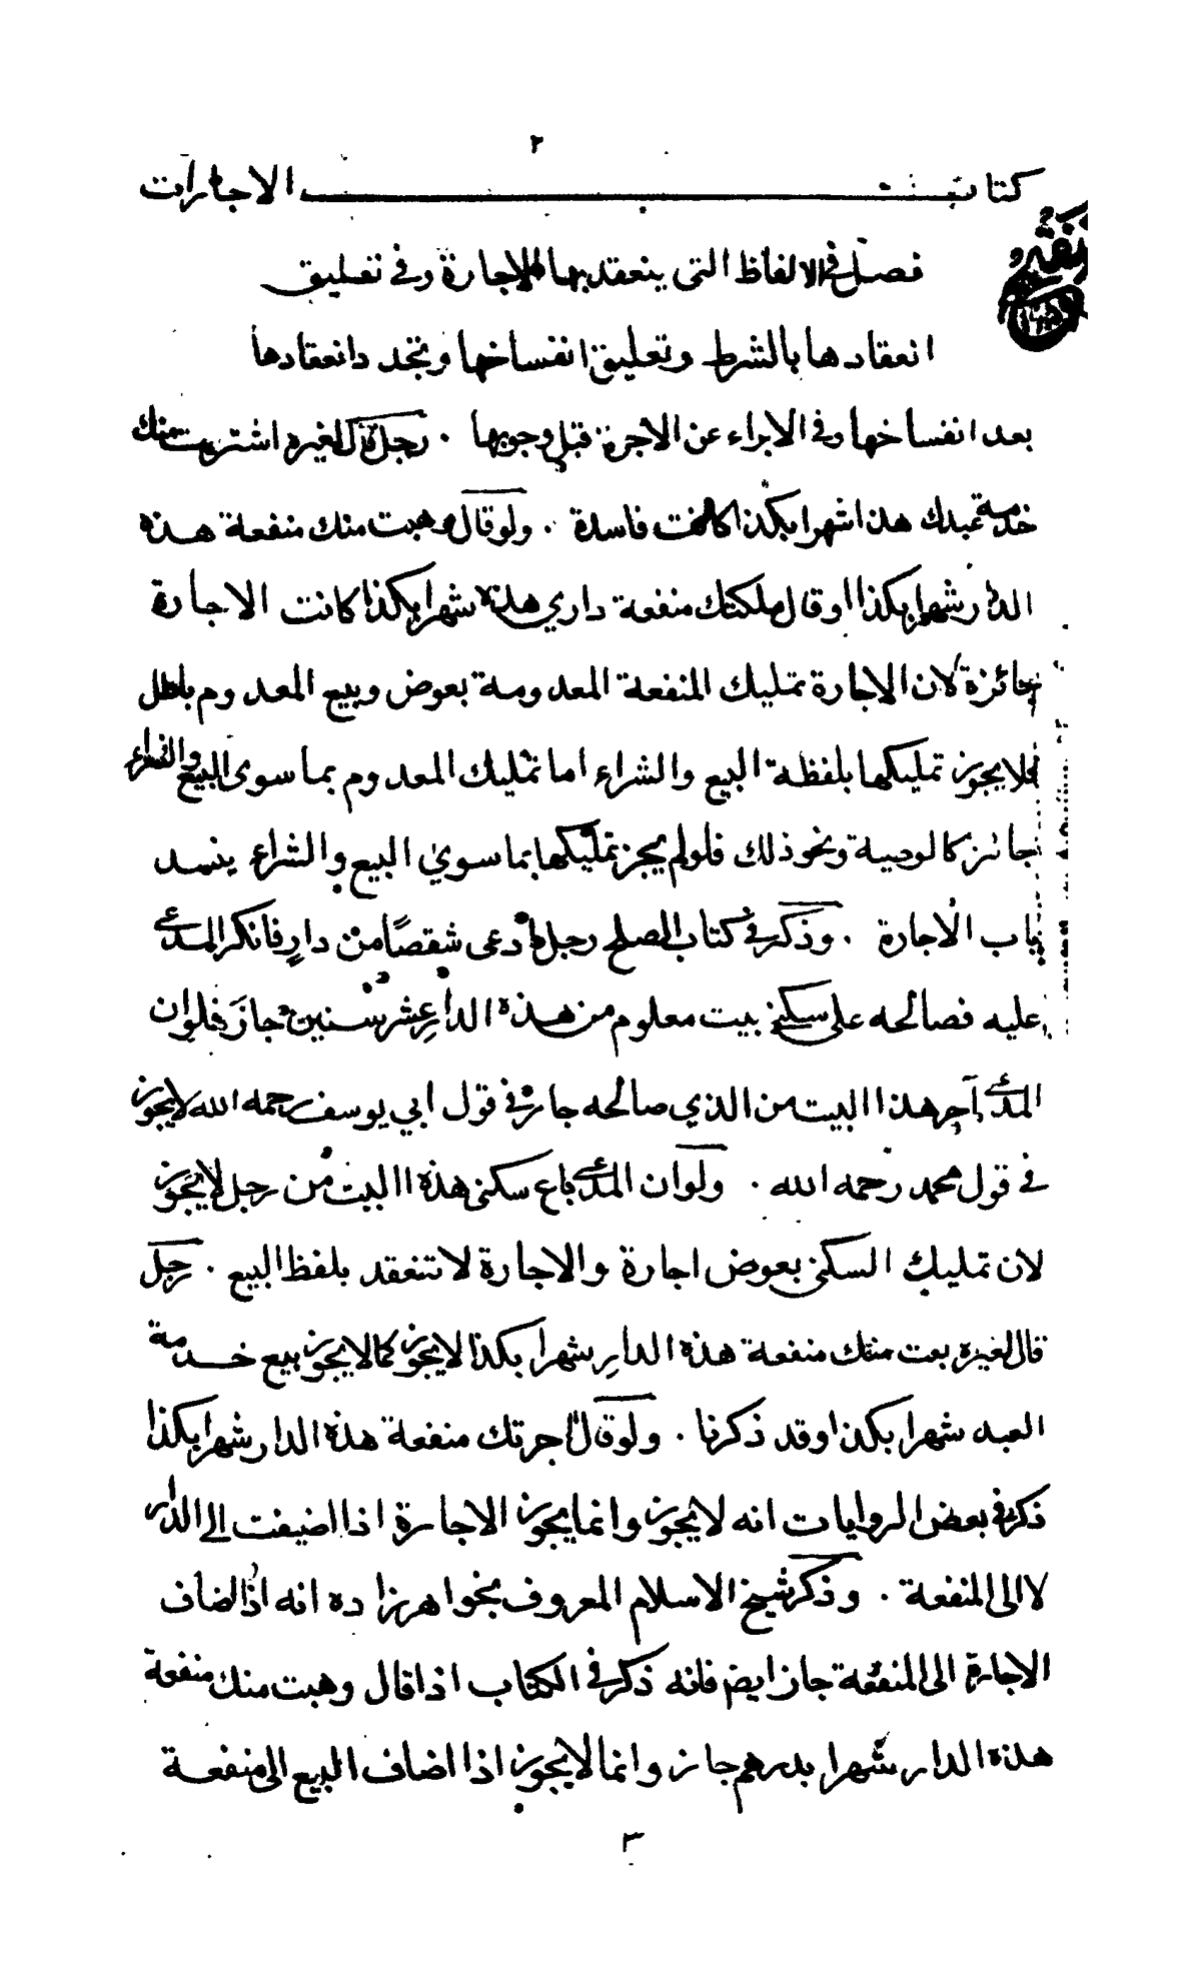 ٢
كتاب الاجارات
فصل في الالفاظ التي ينعقد بها الاجارة وفي تعليق
انعقادها بالشرط وتعليق انفساخها وتجدد انعقادها
بعد انفساخها وفي الابراء عن الاجرة قبل وجوبها . رجل قال لغيره اشتريت منك
خدمة عبدك هذا شهرا بكذا كانت فاسدة . ولو قال وهبت منك منفعة هذه
الدار شهرا بكذا او قال ملكتك منفعة داري هذه شهرا بكذا كانت الاجارة
جائزة لان الاجارة تمليك المنفعة المعدومة بعوض وبيع المعدوم باطل
فلا يجوز تمليكها بلفظة البيع والشراء اما تمليك المعدوم بما سوى البيع والشراء
جائز كالوصية ونحو ذلك فلو لم يجز تمليكها بما سوي البيع والشراء ينسد
باب الاجارة . وذكر في كتاب الصلح رجل ادعى شقصًا من دارٍ فانكر المدعى
عليه فصالحه على سكنى بيت معلوم من هذه الدارِ عشر سنين جازَ فلو ان
المدعي آجر هذا البيت من الذي صالحه جاز في قول ابي يوسف رحمه الله لا يجوز
في قول محمد رحمه الله . ولو ان المدعي باع سكنى هذه البيت من رجل لا يجوز
لان تمليك السكنى بعوض اجارة والاجارة لا تنعقد بلفظ البيع . رجل
قال لغيره بعت منك منفعة هذه الدارِ شهرا بكذا لا يجوز كما لا يجوز بيع خدمة
العبد شهرا بكذا وقد ذكرنا . ولو قال اجرتك منفعة هذه الدار شهرا بكذا
ذكر في بعض الروايات انه لا يجوز وانما يجوز الاجارة اذا اضيفت الى الدار
لا الى المنفعة . وذكر شيخ الاسلام المعروف بخواهرزاده انه اذا اضاف
الاجارة الى المنفعة جاز ايضم فانه ذكر في الكتاب اذا قال وهبت منك منفعة
هذه الدار شهرا بدرهم جاز وانما لا يجوز اذا اضاف البيع الى منفعة
٣